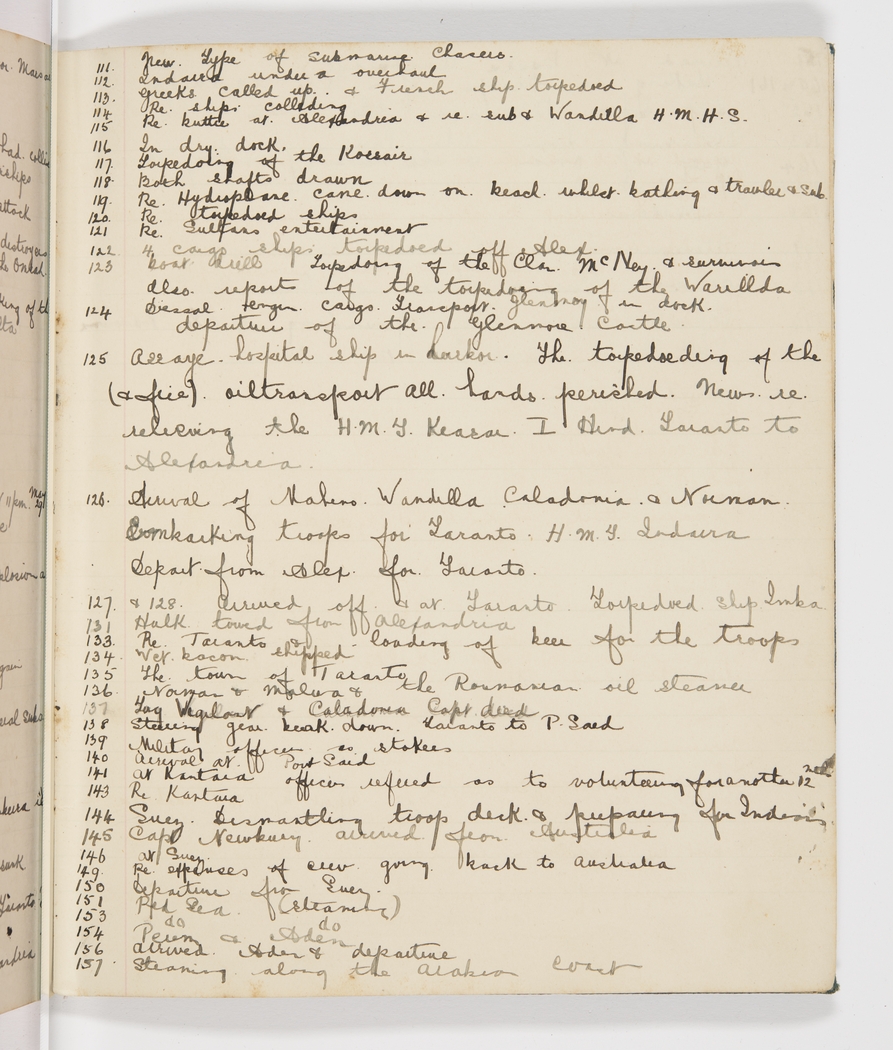 111. New. Type of Submarine Chasers.
112. Indarra under a overhaul
113. Greeks called up. & French ship torpedoed
114 Re. ships colliding
115 Re. at. Alexandria & re. sub & Wandilla H.M.H.S.
116 In dry. dock.
117. Torpedoing of the Kossair
118. Both shafts drawn
119. Re. Hydroplane. came down on. beach. whilst. bathing & trawler & sub.
120. Re. torpedoed ships
121 Re. Sultans entertainment
122. 4 cargo ships torpedoed off Alex.
123 boat drill Torpedoing of the Clan McNey. & survivors
also. report of the torpedoing of the Warillda
124 cargo. Transport. in dock.
departure of the. Glenmore Castle.
125 Assaye. hospital ship in harbor. The. torpedoeding of the
(& fire). oiltransport all. hands. perished. News. re.
relieving the H.M.T. I Hind. Taranto to
Alexandria.
126. Arrival of Maheno. Wandilla Caladonia. & Norman.
Embarking troops for Taranto. H.M.T. Indarra
Depart. from Alex. for. Taranto.
127. & 128. arrived off. & at Taranto. Torpedoed ship Imka
131 Hulk towed from Alexandria
133. Re. Taranto & loading of beer for the troops
134. bacon. shipped
135 The. town of Taranto
136. Norman & Malwa & the Roumanian oil steamer
137 Tug Vigilant & Caladonia Capt. died
138 Steering gear break. down. Taranto to P. Said
139 Military officers as stokers
140 arrival at. Port Said
141 at Kantara officers refused as to volunteering for another 12
143 Re. Kantara
144 Suez. Dismantling troop deck. & preparing for Indians.
145 Capt Newbury arrived from Australia
146 at Suez
149. Re. expenses of crew going back to Australia
150 Departure for Suez.
151 Red Sea. (steaming)
153 do do
154 Perim & Aden
156 arrived. Aden & departure
157 Steaming along the Arabian Coast